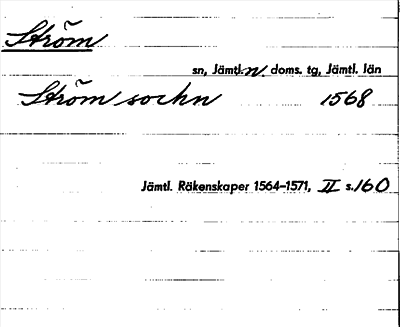 Ström
sn, Jämtl. n doms. tg, Jämtl. län
Ström sockn 1568
Jämtl. Räkenskaper 1564–1571, II s. 160